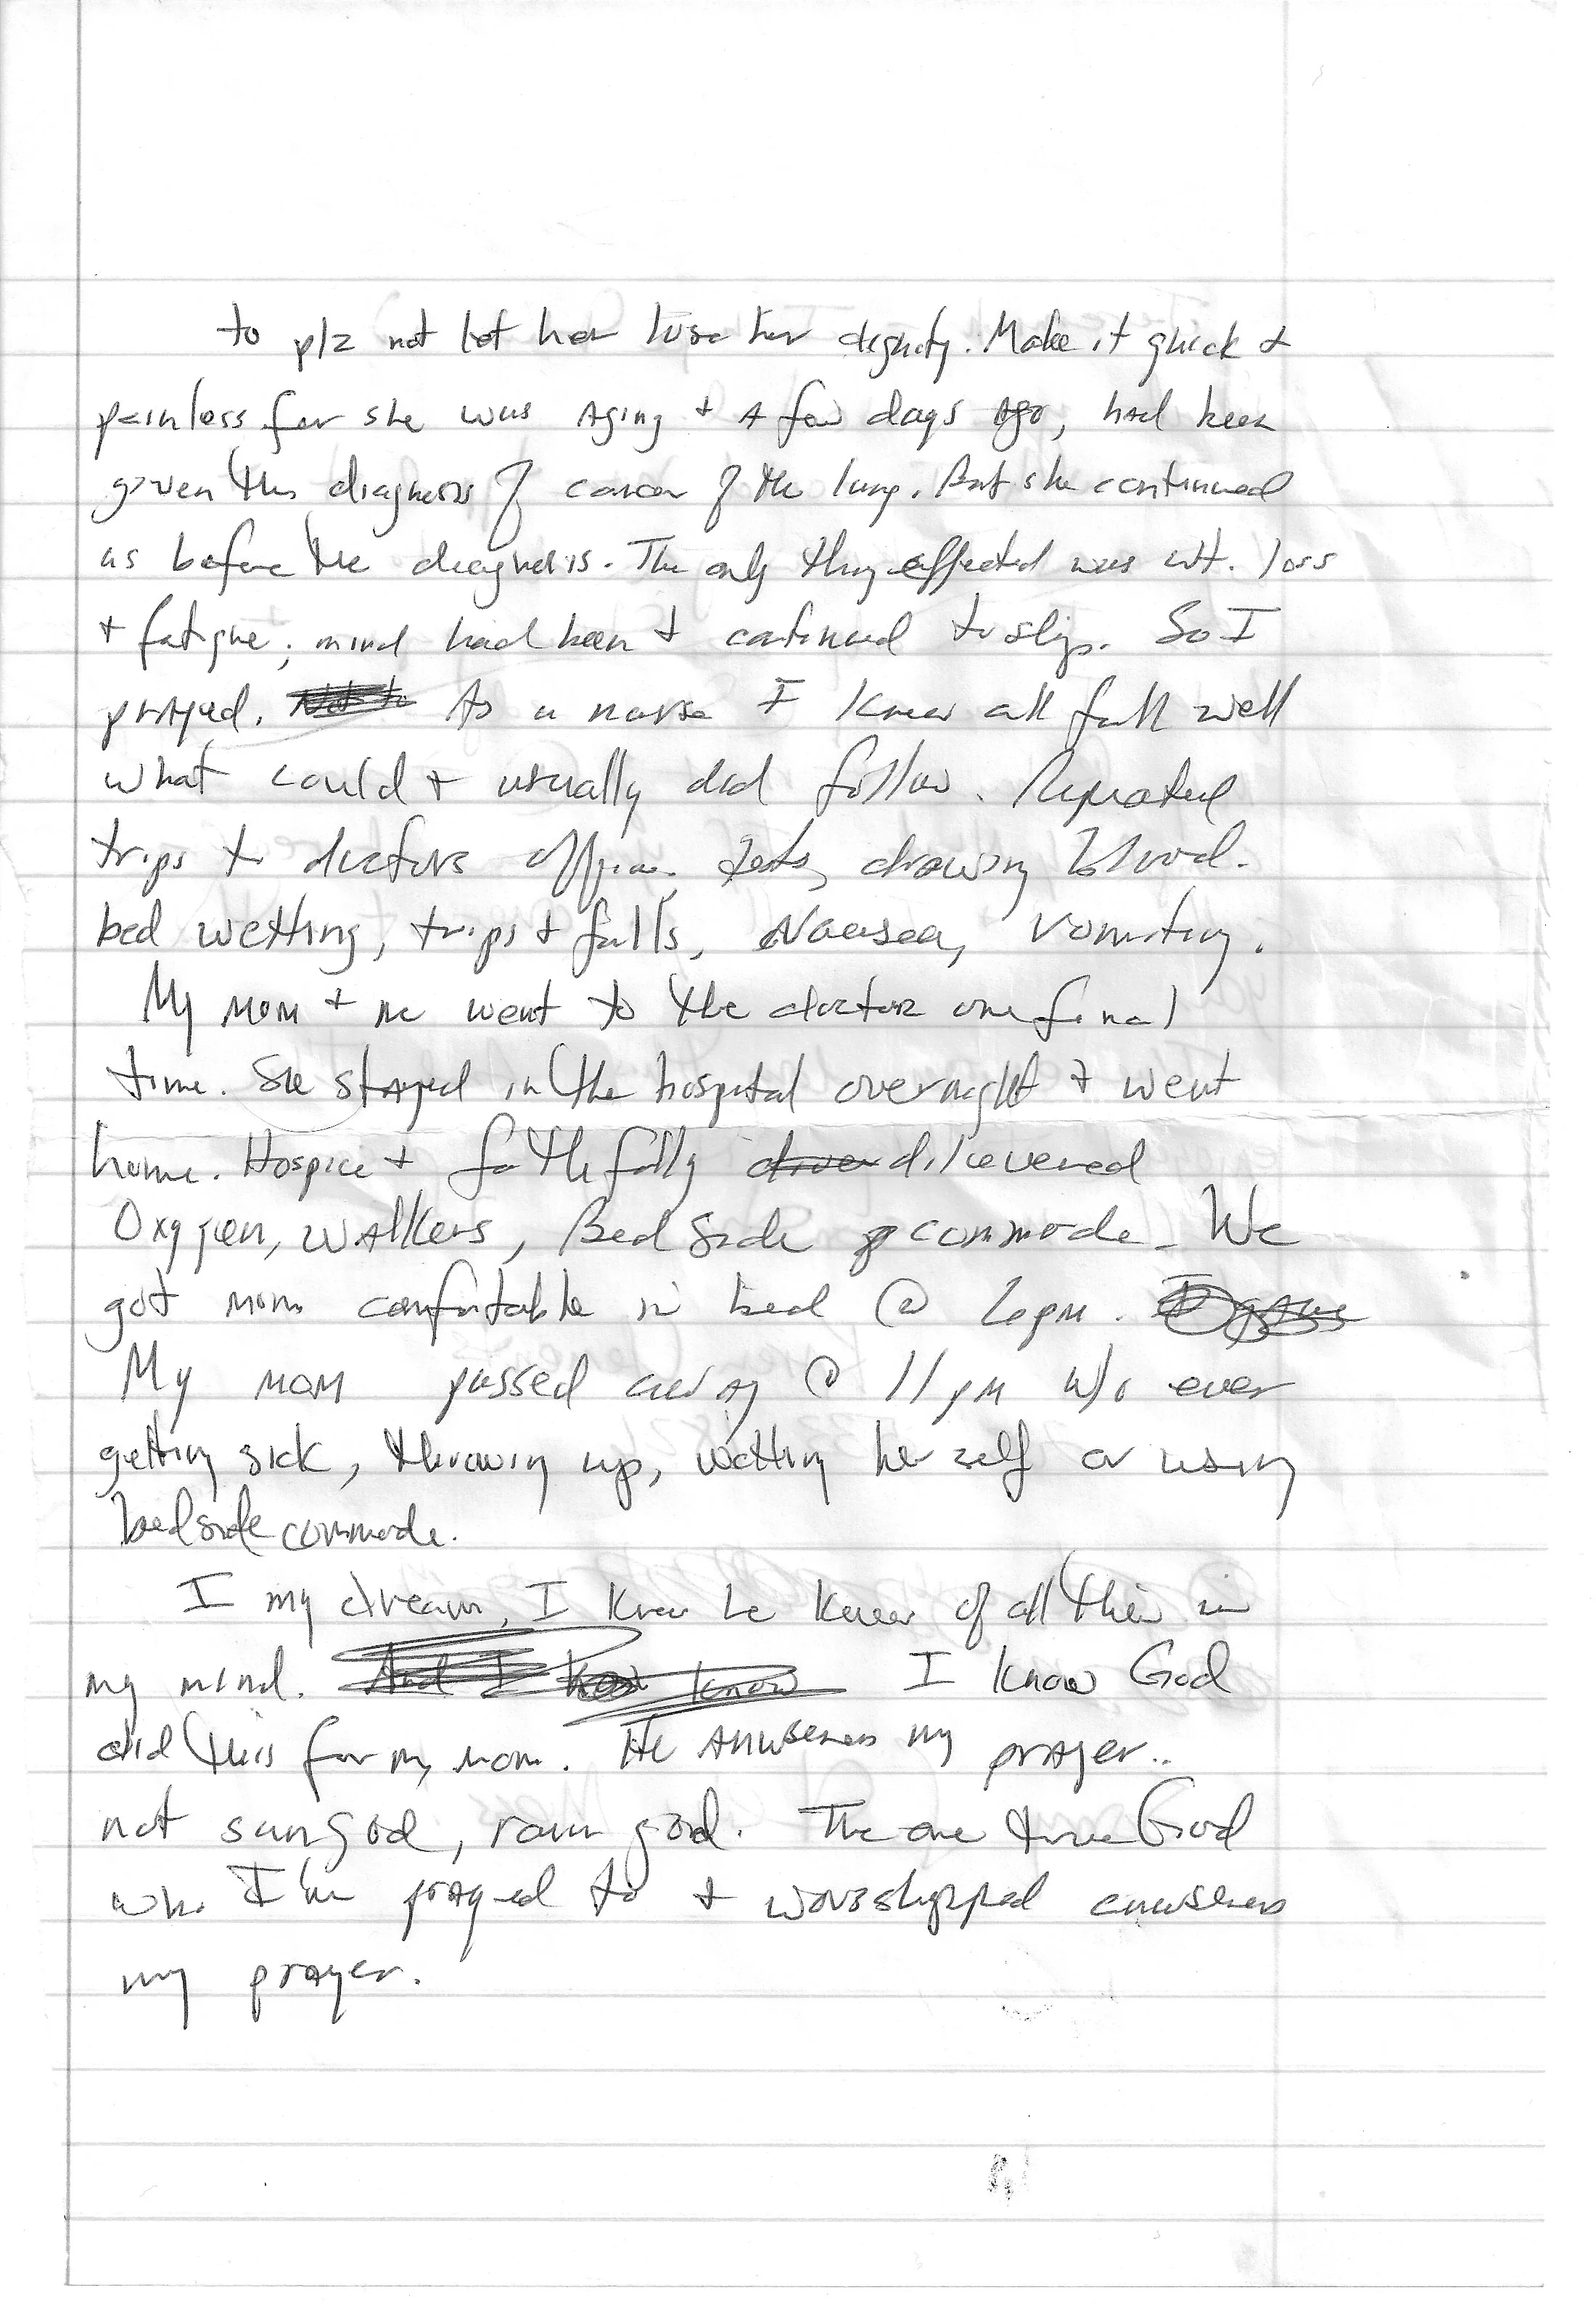 to plz not let her lose her dignity. Make it quick +
painless for she was aging + a few days ago, had been
given the diagnosis of cancer of the lung. But she continued
as before the diagnosis. The only thing effected was wt. loss
+ fatigue; mind had been + continued to slip. So I
prayed. As a nurse I knew all full well
what could + usually did follow. Repeated
trips to doctors office. Tests, drawing blood.
bed wetting, trips + falls, Nausea, Vomiting.
My mom + me went to the doctor one final
time. She stayed in the hospital overnight + went
home. Hospice + faithfully dilievered
Oxygen, walkers, Bedside commode. We
got mom comfortable in bed @
My mom passed away @ 11 pm w/o ever
getting sick, throwing up, wetting her self or using
bedside commode.
I my dream, I knew he knew of all this in
my mind. And I know I know God
did this for my mom. He answers my prayer..
not sun god, rain god. The one true God
who I've prayed to + worshipped answers
my prayer.